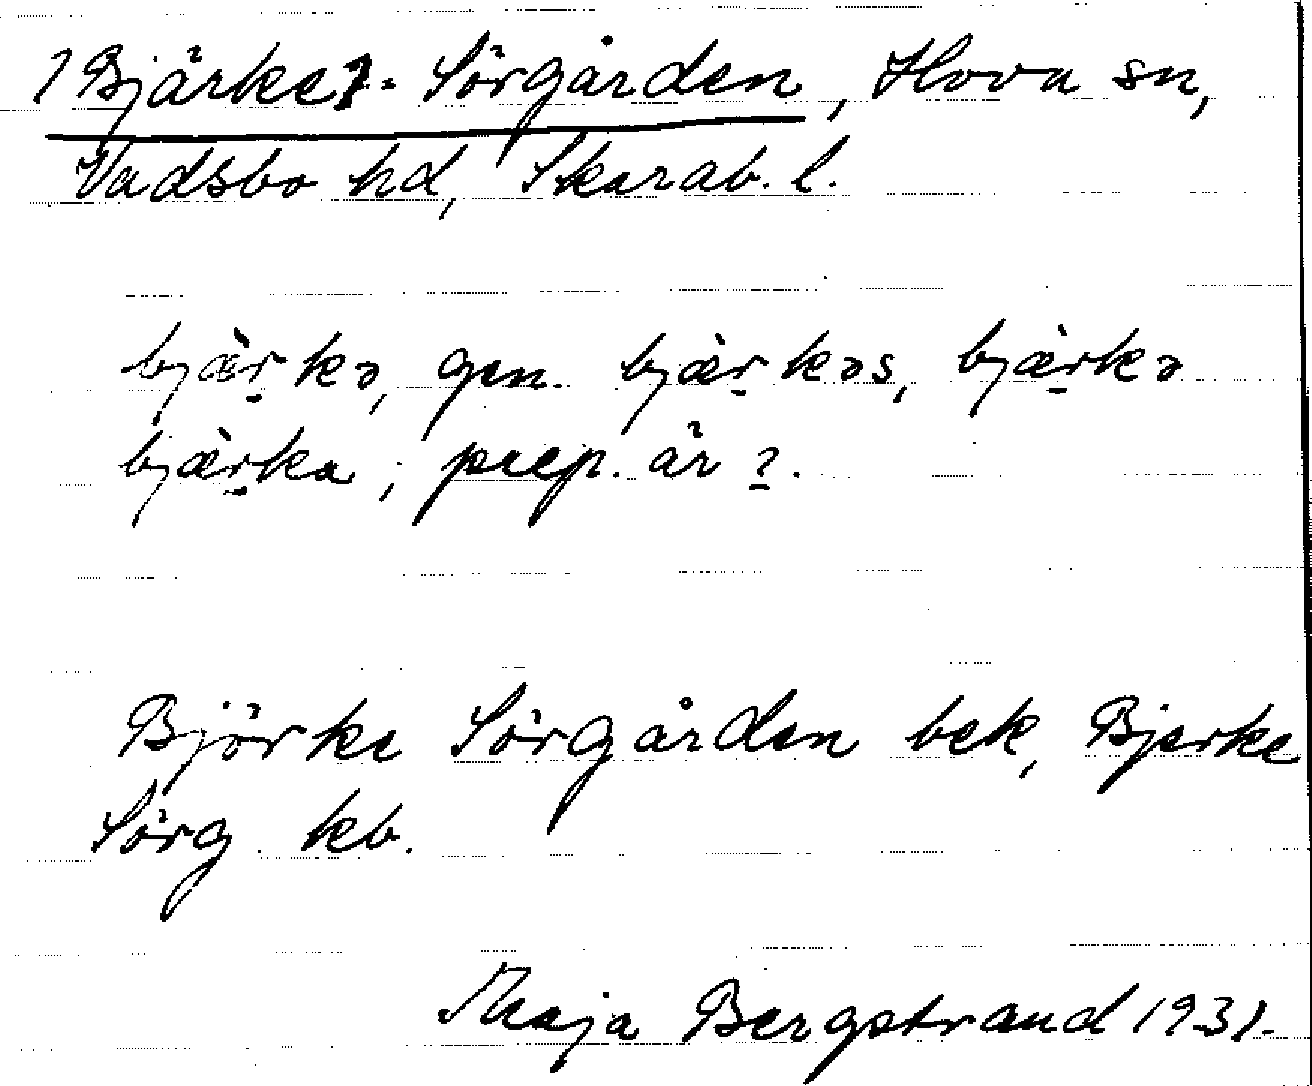 1 Björke 1. Sörgården, Hova sn,
Vadsbo hd, Skarab. l.
bjæ̀r̠kə, gen. bjæ̀r̠kəs, bjæ̀r̠kə
bjæ̀r̠ka; prep. år ?.
Björke Sörgården bek, Bjerke
Sörg kb.
Maja Bergstrand 1931.